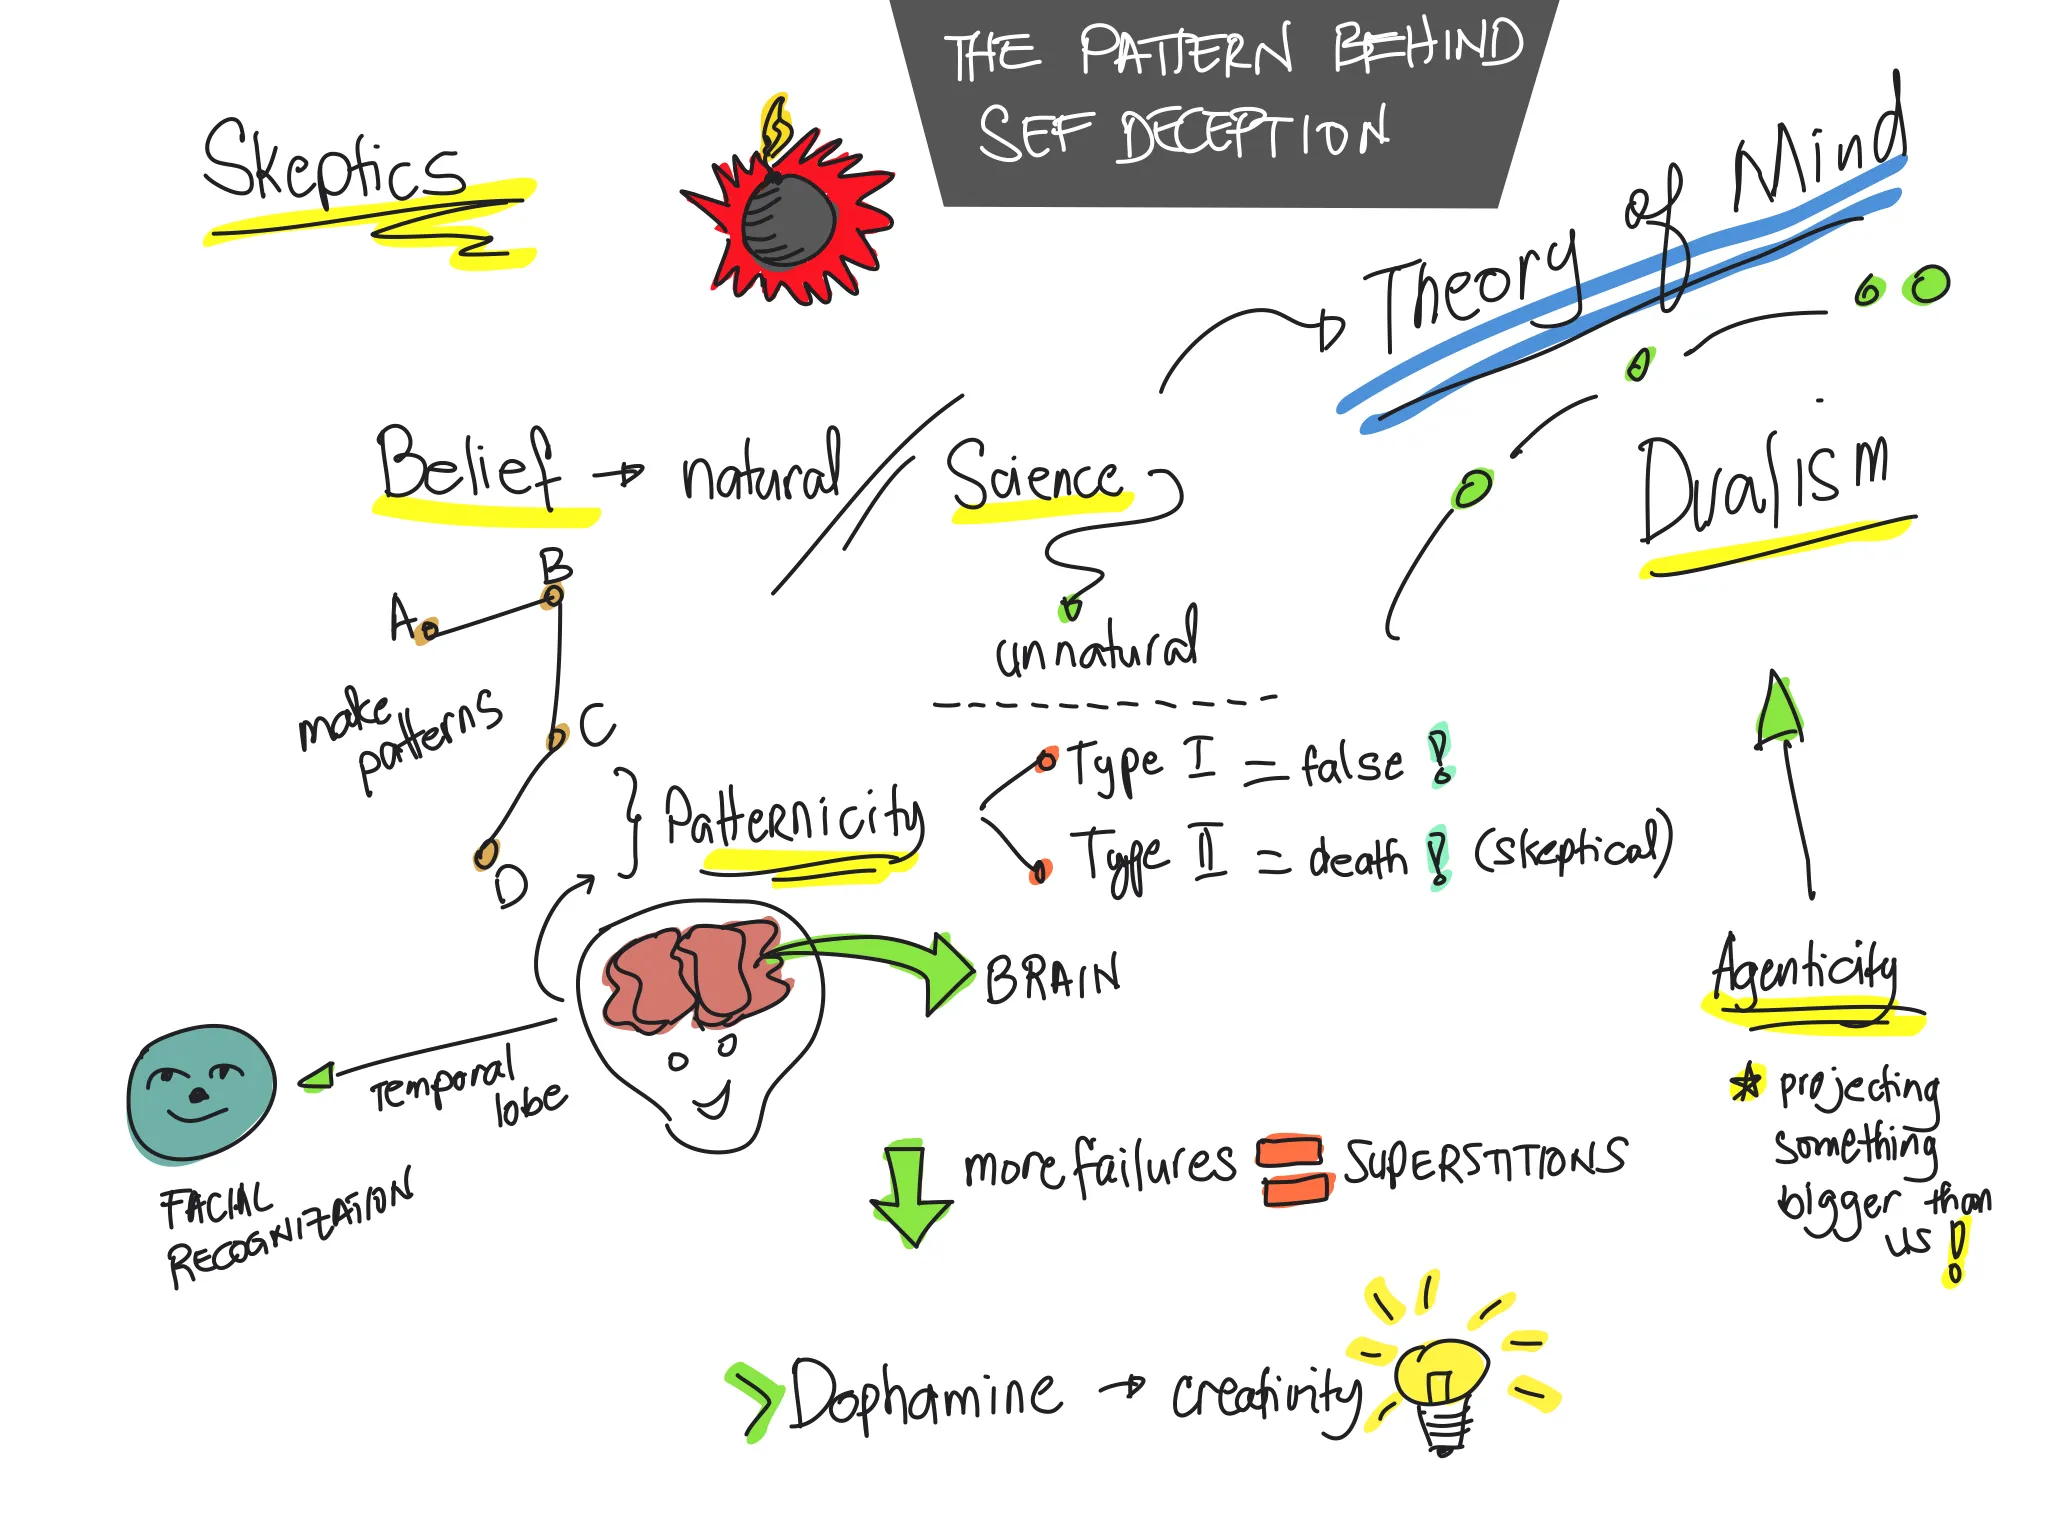 THE PATTERN BEHIND
SEF DECEPTION
Skeptics
Theory of Mind
Belief → natural
Science
unnatural
Dualism
A
B
C
D
make
patterns
Patternicity
Type I = false !
Type II = death ! (skeptical)
BRAIN
Temporal
lobe
FACIAL
RECOGNIZATION
Agenticity
* projecting
something
bigger than
us !
more failures = SUPERSTITIONS
> Dophamine → creativity